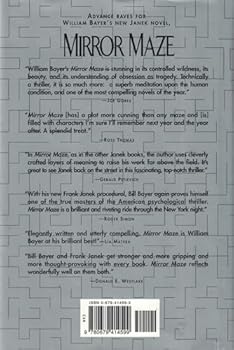 ADVANCE RAVES FOR
WILLIAM BAYER'S NEW JANEK NOVEL,
MIRROR MAZE
"William Bayer's Mirror Maze is stunning in its controlled wildness, its
beauty, and its understanding of obsession as tragedy. Technically
a thriller, it is so much more: a superb meditation upon the human
condition, and one of the most compelling novels of the year."
—JOE GORES
"Mirror Maze [has] a plot more cunning than any maze and [is]
filled with characters I'm sure I'll remember next year and the year
after. A splendid treat."
—ROSS THOMAS
"In Mirror Maze, as in the other Janek books, the author uses cleverly
crafted layers of meaning to raise his work far above the field. It's
great to see Janek back on the street in this fascinating, top-notch thriller."
—GERALD PETIEVICH
"With his new Frank Janek procedural, Bill Bayer again proves himself
one of the true masters of the American psychological thriller.
Mirror Maze is a brilliant and riveting ride through the New York night."
—ROGER SIMON
"Elegantly written and utterly compelling, Mirror Maze is William
Bayer at his brilliant best!" —LIA MATERA
"Bill Bayer and Frank Janek get stronger and more gripping and
more thought-provoking with every book. Mirror Maze reflects
wonderfully well on them both."
—DONALD E. WESTLAKE
ISBN 0-679-41459-3
9 780679 414599